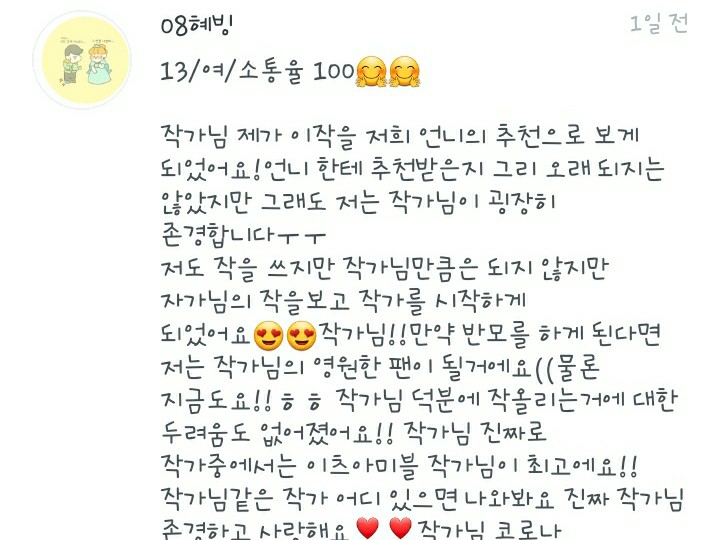 08혜빙
1일 전
13/여/소통율 100🤗🤗
작가님 제가 이작을 저희 언니의 추천으로 보게
되었어요!언니 한테 추천받은지 그리 오래되지는
않았지만 그래도 저는 작가님이 굉장히
존경합니다ㅜㅜ
저도 작을 쓰지만 작가님만큼은 되지 않지만
자가님의 작을보고 작가를 시작하게
되었어요😍😍작가님!!만약 반모를 하게 된다면
저는 작가님의 영원한 팬이 될거에요((물론
지금도요!!ㅎㅎ 작가님 덕분에 작올리는거에 대한
두려움도 없어졌어요!! 작가님 진짜로
작가중에서는 이츠아미블 작가님이 최고에요!!
작가님같은 작가 어디 있으면 나와봐요 진짜 작가님
존경하고 사랑해요♥️♥️작가님 코로나